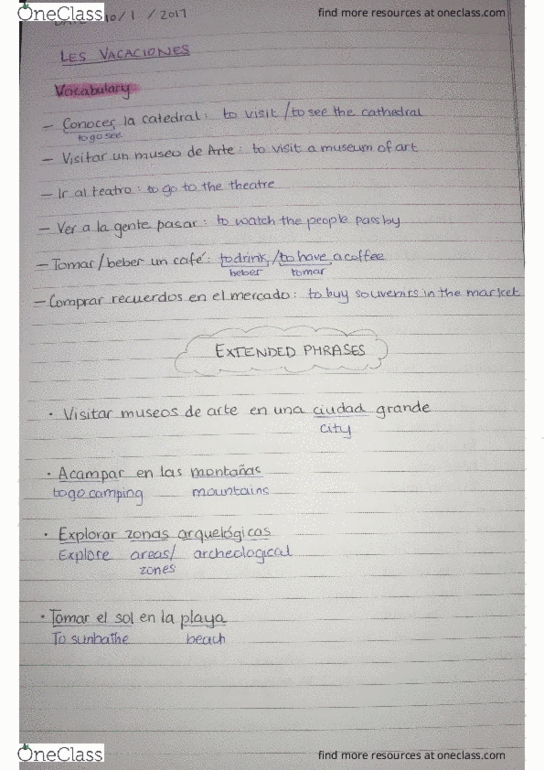 OneClass find more resources at oneclass.com
10/1/2017
LES VACACIONES
Vocabulary
- Conocer la catedral: to visit/to see the cathedral
to go see
- Visitar un museo de Arte: to visit a museum of art
- Ir al teatro: to go to the theatre
- Ver a la gente pasar: to watch the people pass by
- Tomar/beber un café: to drink/to have a coffee
beber tomar
- Comprar recuerdos en el mercado: to buy souvenirs in the market
EXTENDED PHRASES
· Visitar museos de arte en una ciudad grande
city
· Acampar en las montañas
to go camping mountains
· Explorar zonas arquelógicas
Explore areas/ archeological
zones
· Tomar el sol en la playa
To sunbathe beach
OneClass find more resources at oneclass.com